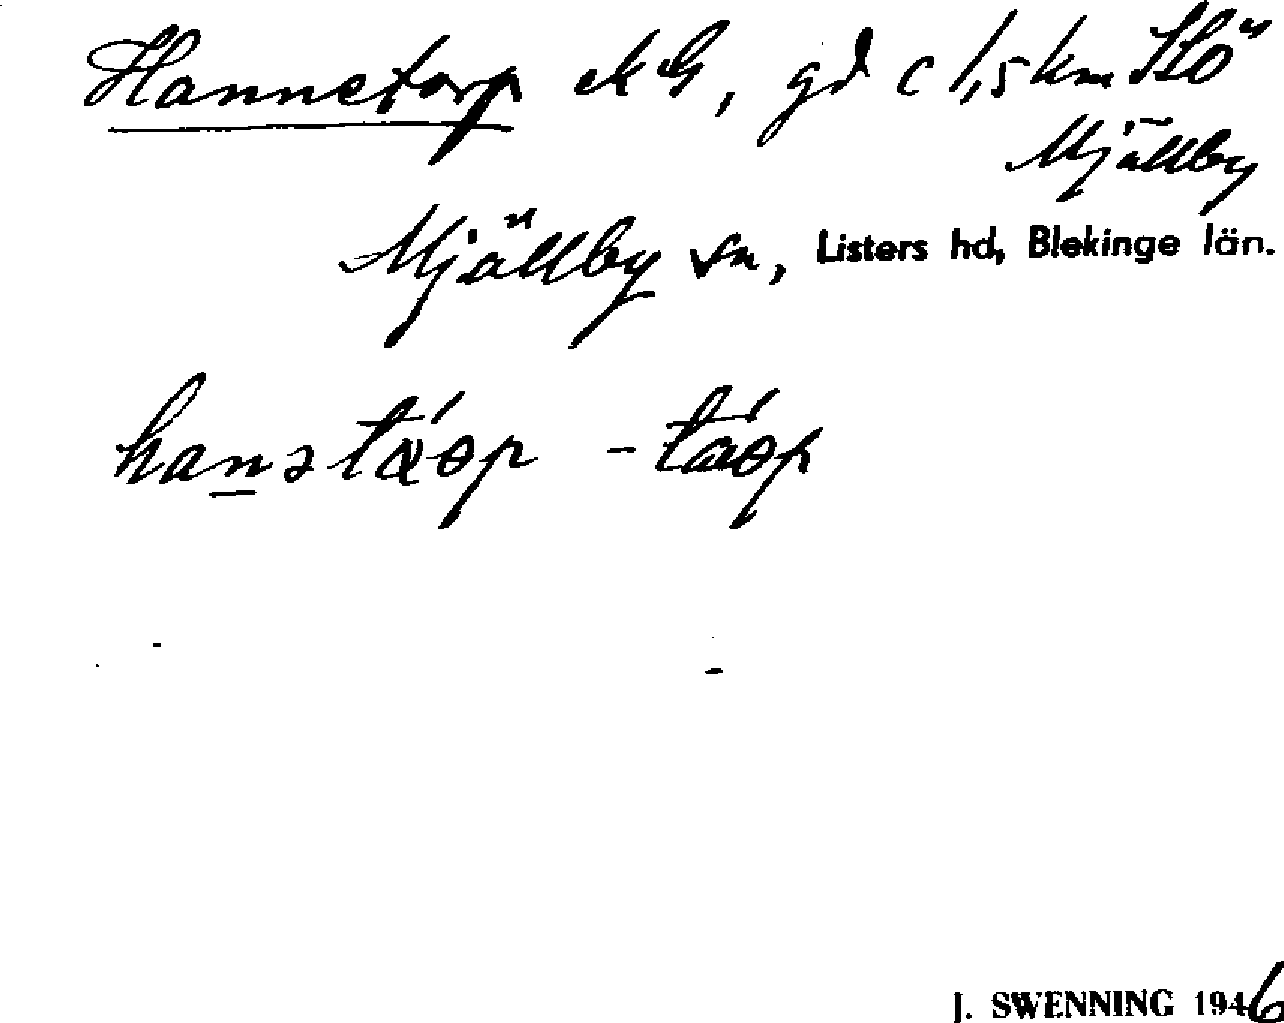 Hannetorp ekG, gd c 1,5 km SLO
Mjällby
Mjällby sn, Listers hd, Blekinge län.
hanətáop - táop
J. SWENNING 1946